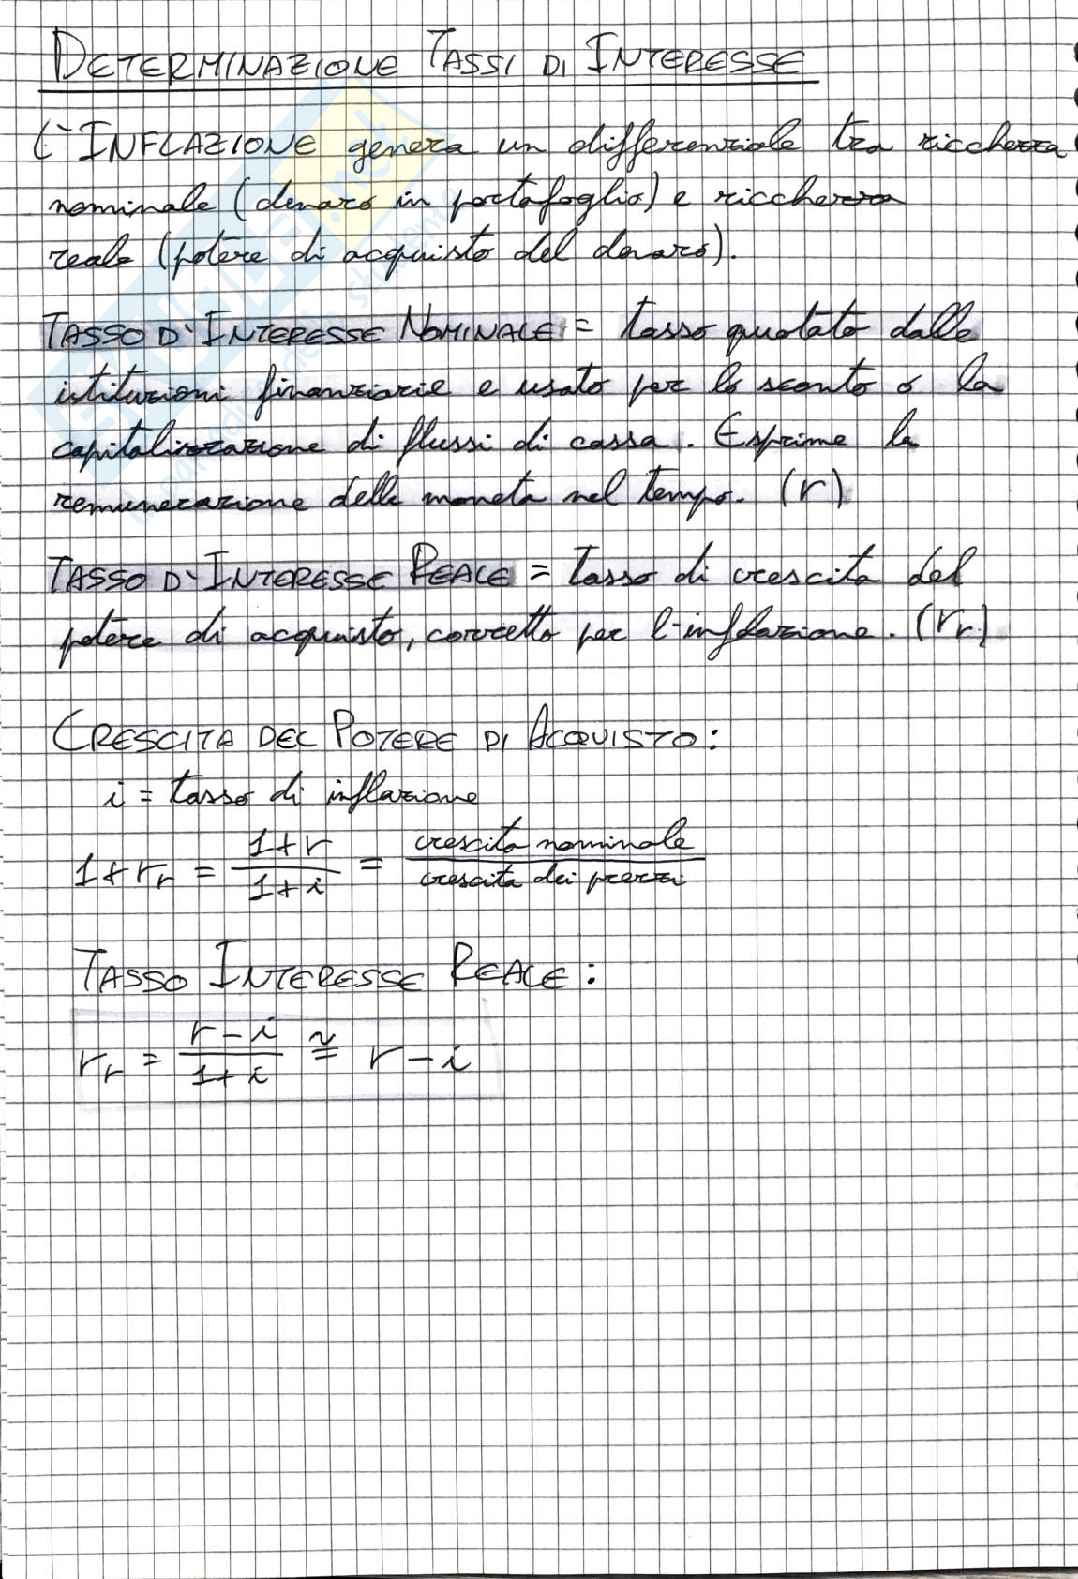 DETERMINAZIONE TASSI DI INTERESSE
L'INFLAZIONE genera un differenziale tra ricchezza
nominale (denaro in portafoglio) e ricchezza
reale (potere di acquisto del denaro).
TASSO D'INTERESSE NOMINALE = tasso quotato dalle
istituzioni finanziarie e usato per lo sconto o la
capitalizzazione di flussi di cassa. Esprime la
remunerazione della moneta nel tempo. (r)
TASSO D'INTERESSE REALE = Tasso di crescita del
potere di acquisto, corretto per l'inflazione. (r_r)
CRESCITA DEL POTERE DI ACQUISTO:
i = tasso di inflazione
1+r_r = (1+r)/(1+i) = crescita nominale / crescita dei prezzi
TASSO INTERESSE REALE:
r_r = (r-i)/(1+i) ≅ r-i